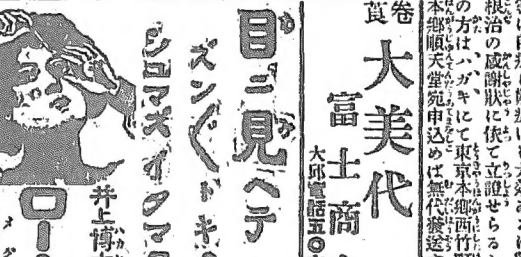 根治の感謝狀に依て立證せらる
の方はハガキにて東京本郷西竹町
本郷順天堂宛申込めば無代發送
卷莨
大美代
富士商
大邱電話五〇
目ニ見ヘテ
ズン〴〵トキ
シュマズイタマズ
井上博
ロー
メ